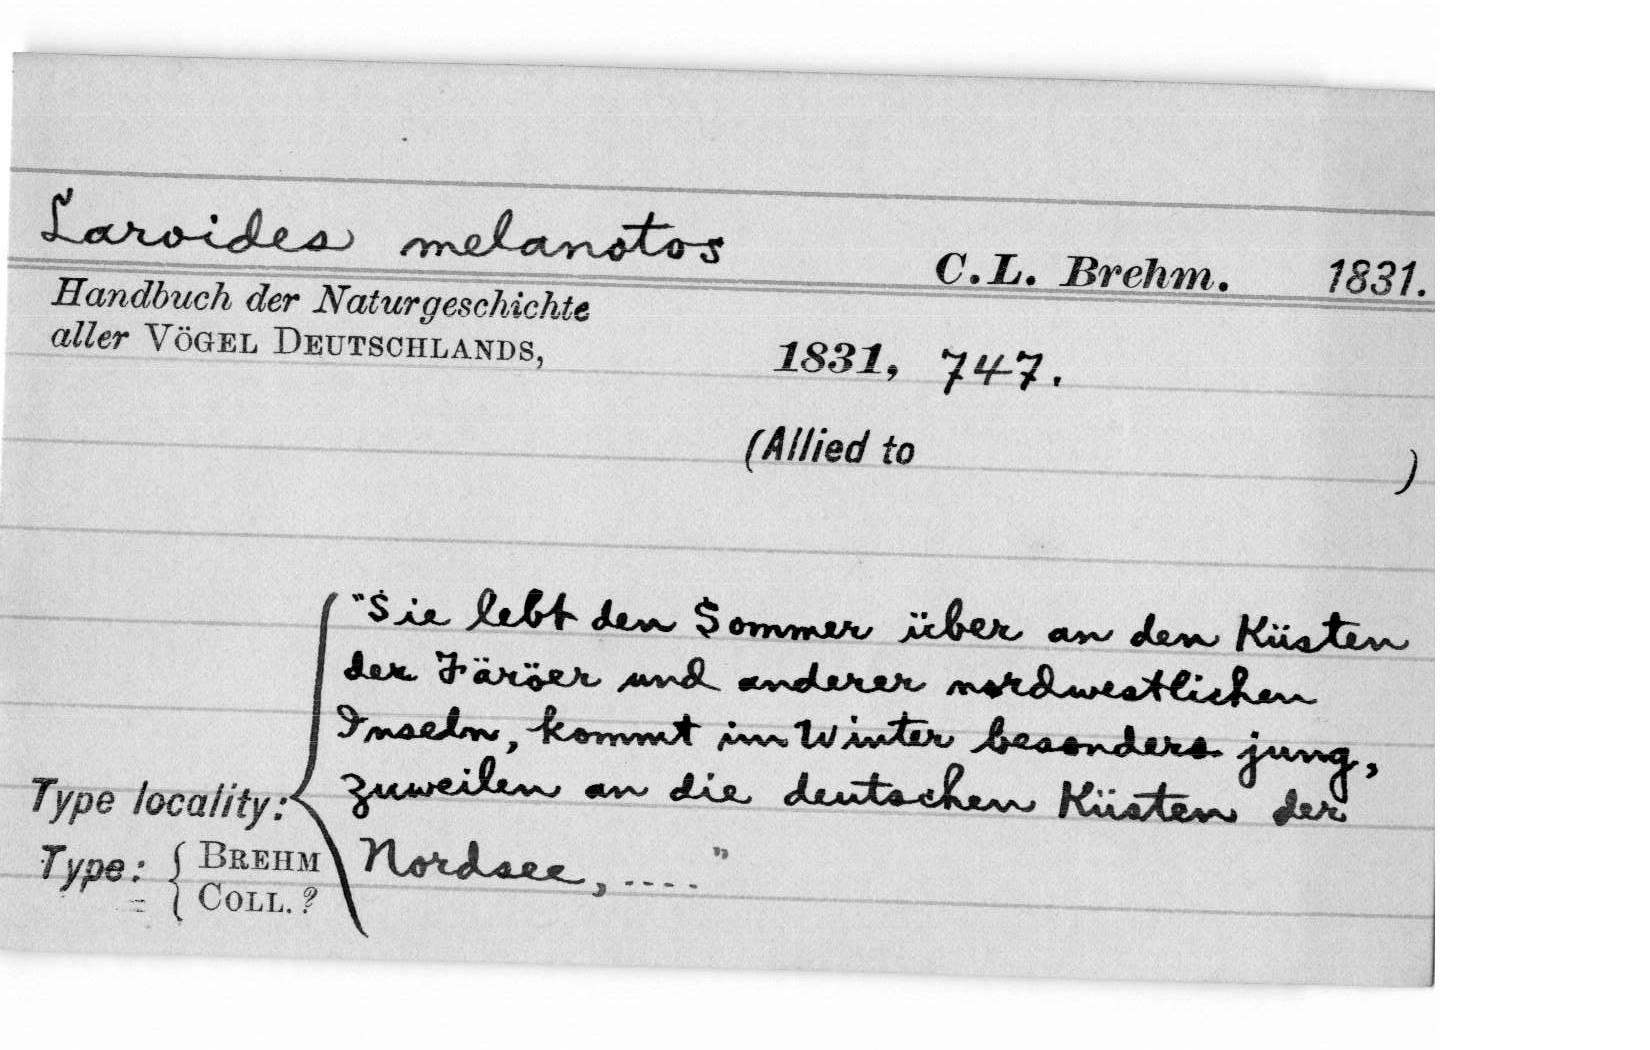 Laroides melanotos C.L. Brehm. 1831.
Handbuch der Naturgeschichte
aller VÖGEL DEUTSCHLANDS, 1831, 747.
(Allied to )
"Sie lebt den Sommer über an den Küsten
der Färöer und anderer nordwestlichen
Inseln, kommt im Winter besonders jung,
zuweilen an die deutschen Küsten der
Nordsee, ...."
Type locality:
Type: BREHM
COLL. ?